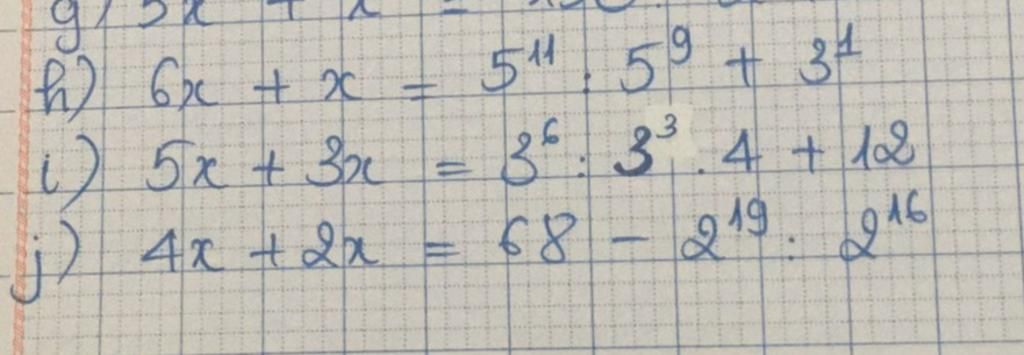 g) 5x + x =
h) 6x + x = 5¹¹ : 5⁹ + 3¹
i) 5x + 3x = 3⁶ : 3³ . 4 + 12
j) 4x + 2x = 68 - 2¹⁹ : 2¹⁶